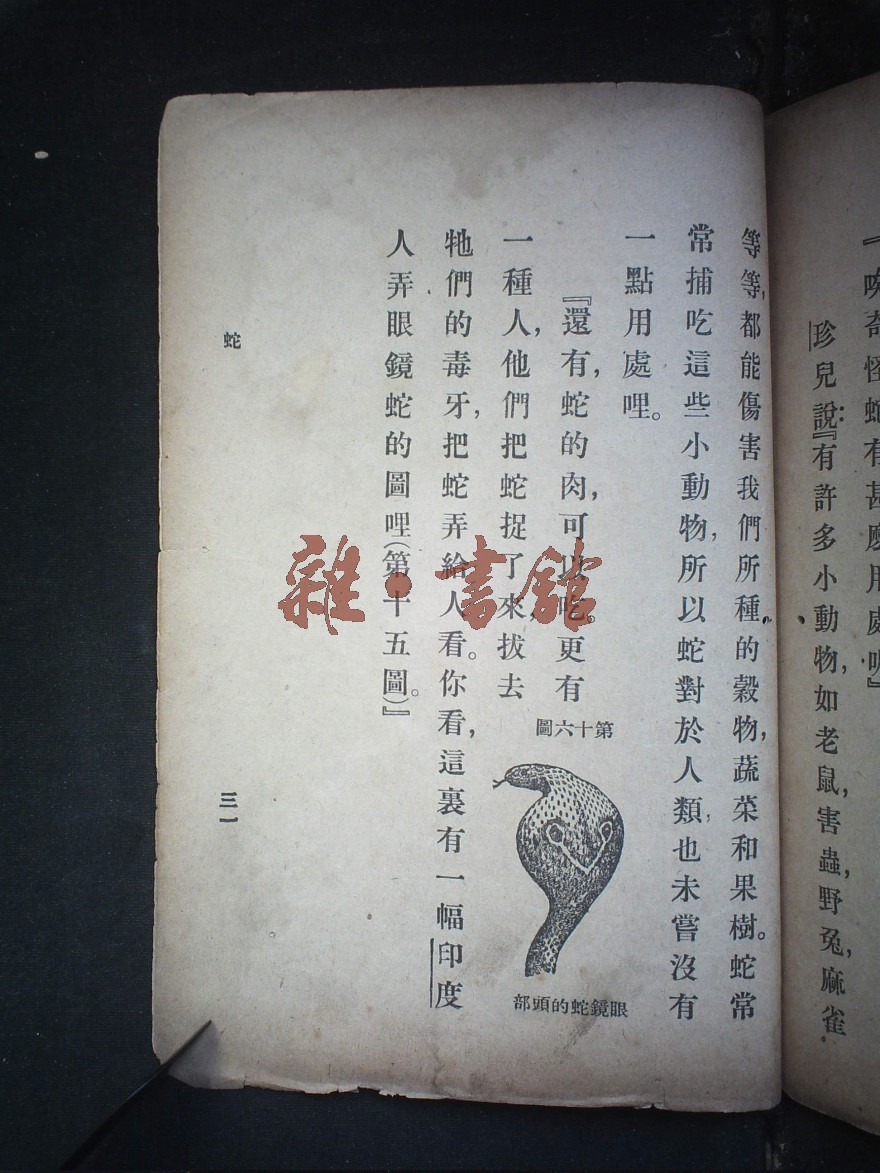 珍兒說：『有許多小動物，如老鼠，害蟲，野兔，麻雀
等等，都能傷害我們所種的穀物，蔬菜和果樹。蛇常
常捕吃這些小動物，所以蛇對於人類，也未嘗沒有
一點用處哩。
『還有，蛇的肉，可以吃。更有
一種人，他們把蛇捉了來，拔去
牠們的毒牙，把蛇弄給人看。你看，這裏有一幅印度
人弄眼鏡蛇的圖哩（第十五圖）。』
第十六圖
眼鏡蛇的頭部
蛇
三一
雜・書館